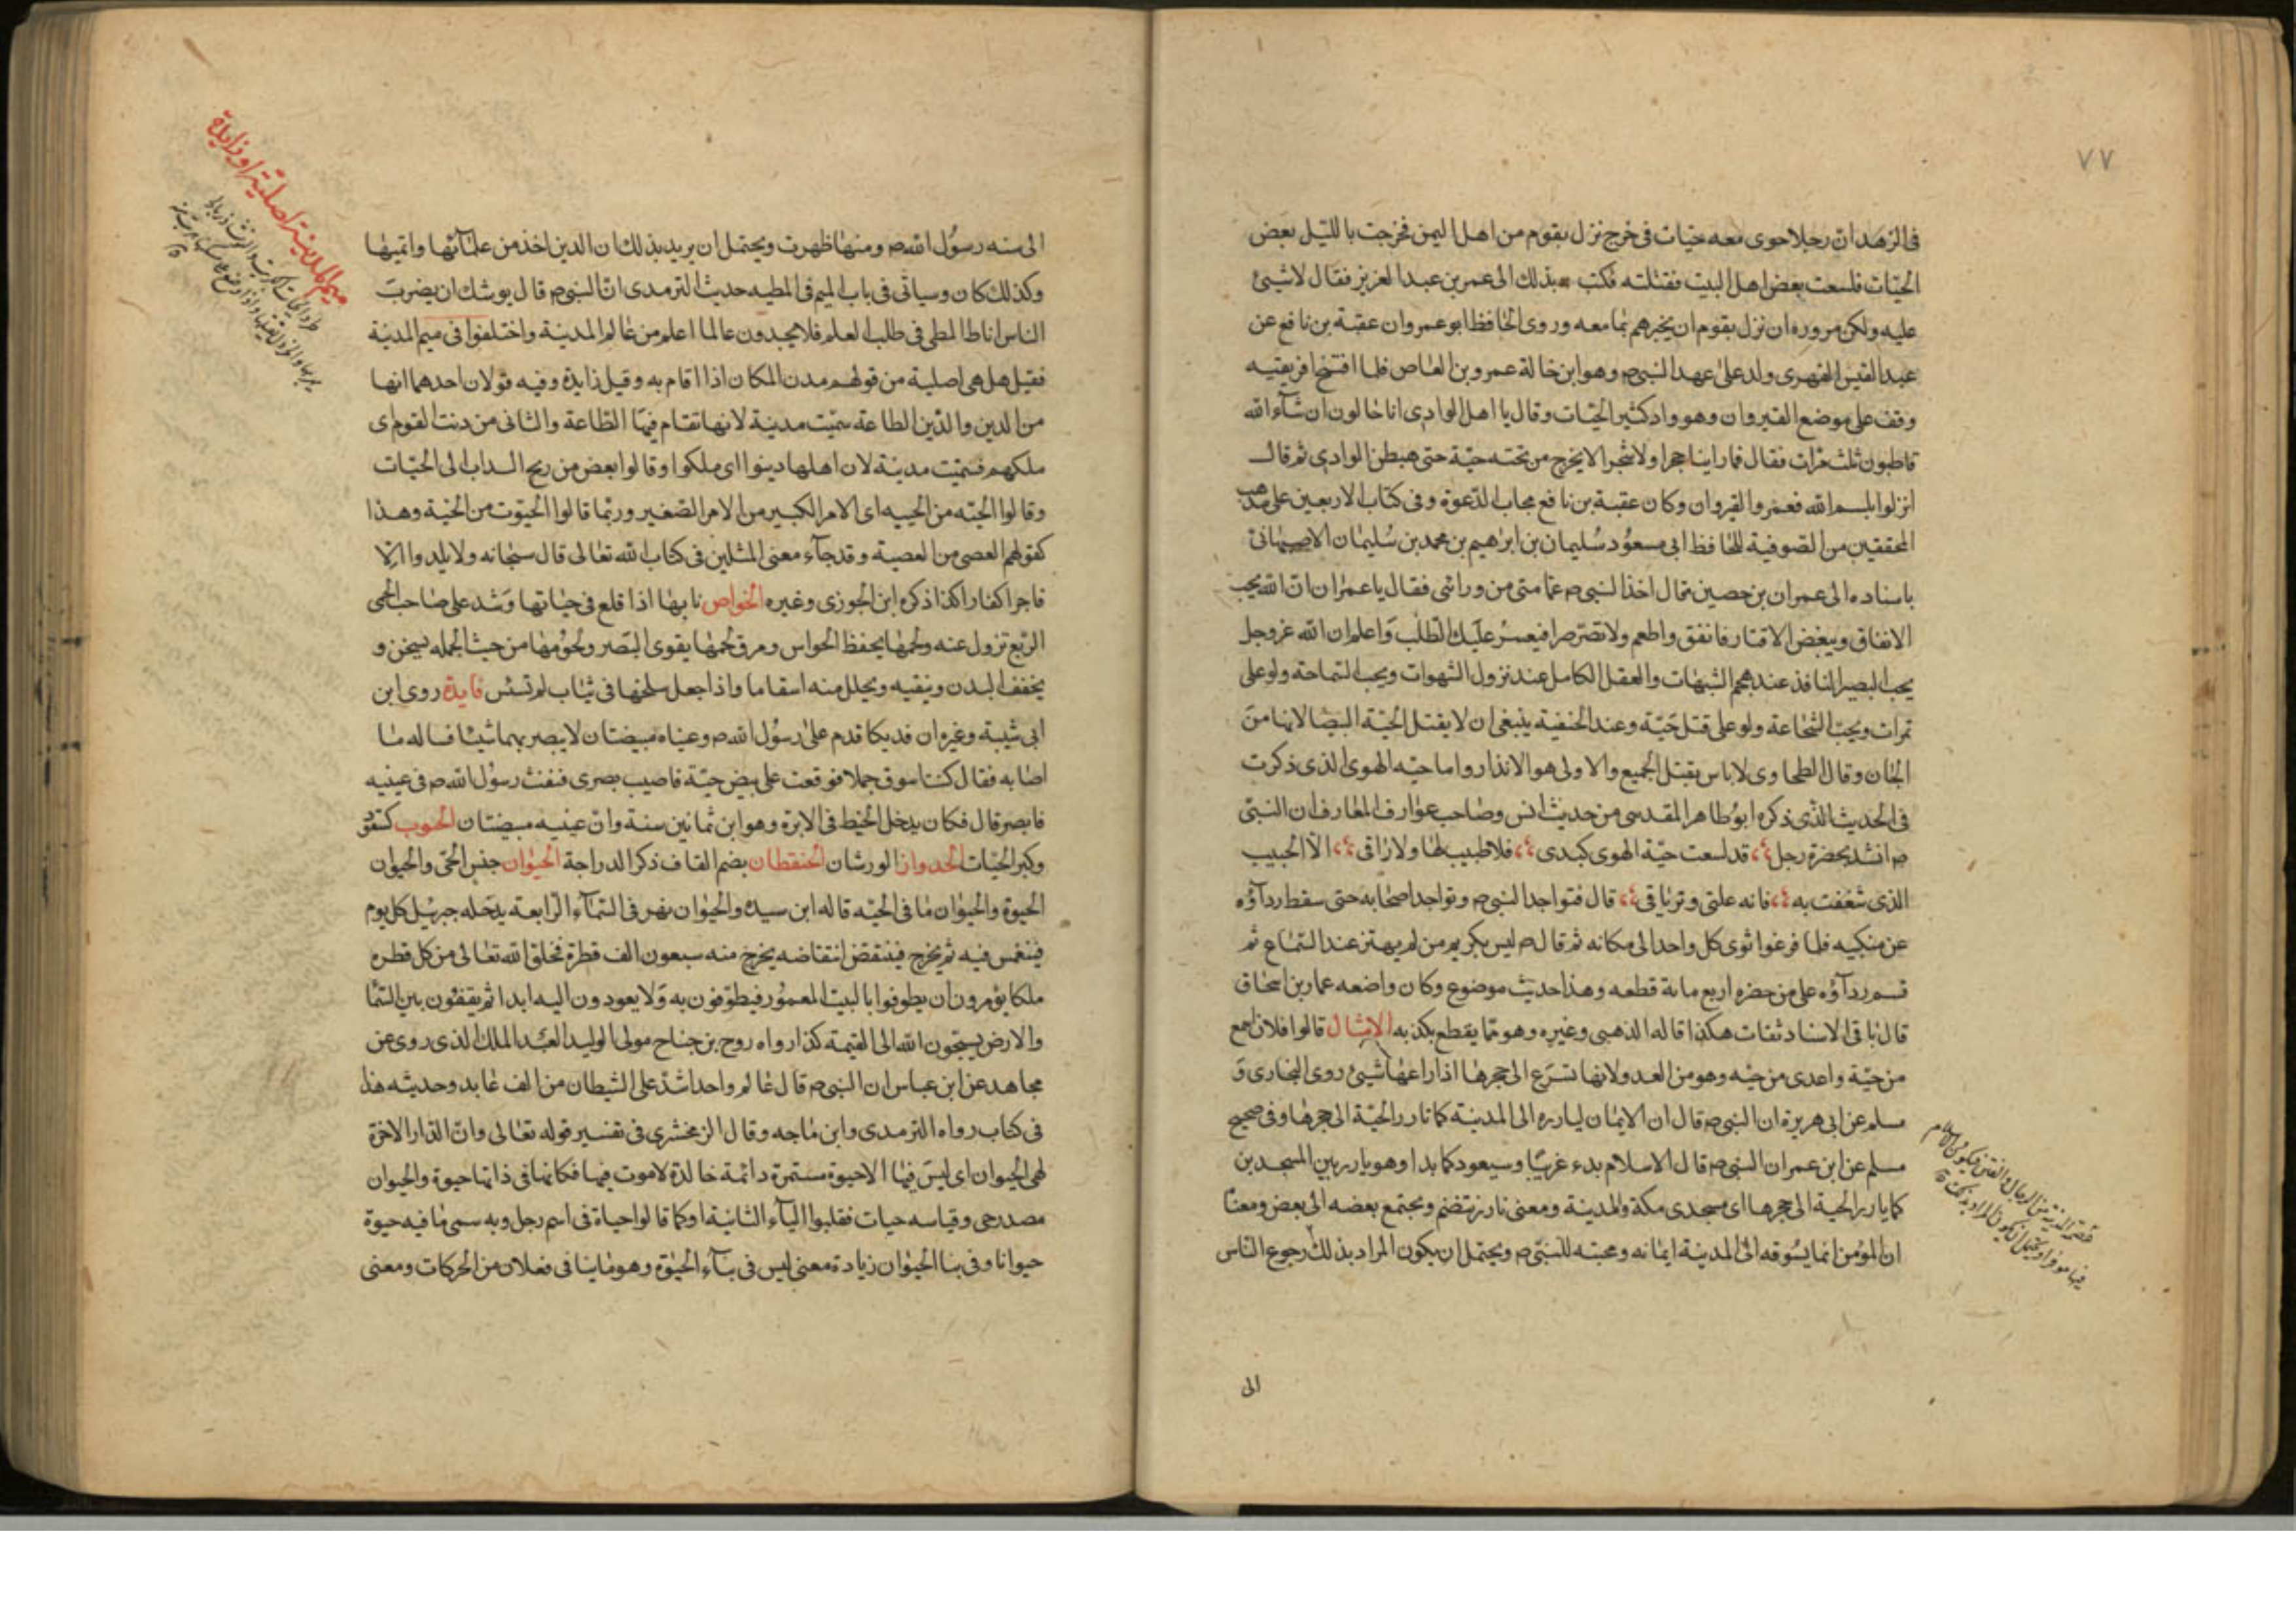 ٧٧
في الزهد ان رجلا حوى معه حيات في خرج نزل بقوم من اهل اليمن فخرجت بالليل بعض
الحيات فلسعت بعض اهل البيت فقتلته فكتب بذلك الى عمر بن عبد العزيز فقال لاشيئ
عليه ولكن مروره ان نزل بقوم ان يخبرهم بما معه وروى الحافظ ابو عمر وان عقبة بن نافع عن
عبد القيس الفهرى ولد على عهد النبي ص وهو ابن خالة عمرو بن العاص فلما افتتح افريقيه
وقف على موضع القيروان وهو واد كثير الحيات وقال يا اهل الوادى انا خالون ان شآء الله
قاطبون ثلث مرات فقال فما راينا حجرا ولا شجرا الا يخرج من تحته حية حتى هبطن الوادى ثم قال
انزلوا بلبسم الله فعمروا القيروان وكان عقبة بن نافع مجاب الدعوة وفي كتاب الاربعين على مذهب
المحققين من الصوفية للحافظ ابي مسعود سليمان بن ابرهيم بن محمد بن سليمان الاصبهاني
باسناده الى عمران بن حصين قال اخذ النبي ص عمامتى من ورائى فقال يا عمران ان الله يحب
الانفاق ويبغض الاقتار فانفق واطعم ولا تصر صرا فيعسر عليك الطلب واعلم ان الله عز وجل
يحب البصير النافذ عند هجم الشبهات والعقل الكامل عند نزول الشهوات ويحب السماحة ولو على
تمرات ويحب الشجاعة ولو على قتل حية وعند الحنفية ينبغى ان لا يقتل الحية البيضا لانها من
الجان وقال الطحاوى لا باس بقتل الجميع والاولى هو الانذار واما حيه الهوى الذى ذكرت
في الحديث الذى ذكره ابو طاهر المقدسى من حديث انس وصاحب عوارف المعارف ان النبى
ص انشد بحضرة رجل قد لسعت حية الهوى كبدى فلا طبيب لها ولا راقى الا الحبيب
الذى شغفت به فانه علتى وترياقى قال فتواجد النبى ص وتواجد اصحابه حتى سقط ردآؤه
عن منكبيه فلما فرغوا ثوى كل واحد الى مكانه ثم قال ص ليس بكريم من لم يهتز عند السماع ثم
قسم ردآؤه على من حضره اربع مائة قطعه وهذا حديث موضوع وكان واضعه عمار بن اسحاق
قال باقى الاسناد ثقات هكذا قاله الذهبى وغيره وهو مما يقطع بكذبه الامثال قالوا فلان اسمع
من حية واعدى من حيه وهو من العدو لانها تسرع الى جحرها اذا راعها شيئ روى البخارى و
مسلم عن ابى هريرة ان النبى ص قال ان الايمان ليارزه الى المدينة كما تارز الحية الى جحرها وفى صحيح
مسلم عن ابن عمر ان النبى ص قال الاسلام بدء غريبا وسيعود كما بدا وهو يارز بين المسجدين
كما يارز الحية الى جحرها اى مسجدى مكة والمدينة ومعنى تارز تنضم وتجتمع بعضه الى بعض ومعنا
ان المؤمن انما يسوقه الى المدينة ايمانه ومحبته للنبى ص ويحتمل ان يكون المراد بذلك رجوع الناس
الى
الى سنه رسول الله ص ومنها ظهرت ويحتمل ان يريد بذلك ان الدين اخذ من علمائها وائمتها
وكذلك كان وسياتى فى باب الميم فى المطيه حديث الترمدى ان النبى ص قال يوشك ان يضرب
الناس اباط المطى فى طلب العلم فلا يجدون عالما اعلم من عالم المدينة واختلفوا فى ميم المدينة
فقيل هل هى اصلية من قولهم مدن المكان اذا اقام به وقيل زايدة وفيه قولان احدهما انها
من الدين والدين الطاعة سميت مدينة لانها تقام فيها الطاعة والثانى من دنت القوم اى
ملكهم فسميت مدينة لان اهلها دينوا اى ملكوا وقالوا بعض من ريح السداب الى الحيات
وقالوا الحيته من الحييه اى الامر الكبير من الامر الصغير وربما قالوا الحيوت من الحية وهذا
كقولهم العصى من العصية وقد جآء معنى المثلين فى كتاب الله تعالى قال سبحانه ولا يلدوا الا
فاجرا كفارا كذا ذكره ابن الجوزى وغيره الخواص نابها اذا قلع فى حياتها وشد على صاحب الحمى
الربع تزول عنه ولحمها يحفظ الحواس ومرق لحمها يقوى البصر ولحومها من حيث الجمله يسخن و
يخفف البدن وينقيه ويحلل منه اسقاما واذا جعل سلخها فى ثياب لم تسئس فايدة روى ابن
ابى شيبة وغيره ان فديكا قدم على رسول الله ص وعيناه مبيضتان لا يبصر بهما شيئا فساله ما
اصابه فقال كنت اسوق جملا فوقعت على بيض حية فاصيب بصرى فنفث رسول الله ص فى عينيه
فابصر قال فكان يدخل الخيط فى الابرة وهو ابن ثمانين سنة وان عينيه مبيضتان الحيوت كتنور
وكبر الحيات الحيدوان الورشان الحنقطان بضم القاف ذكر الدراجة الحيوان جنس الحى والحيوان
الحيوة والحيوان ما فى الجنه قاله ابن سيده والحيوان نهر فى السمآء الرابعة يدخله جبريل كل يوم
فينغمس فيه ثم يخرج فينتفض انتفاضه يخرج منه سبعون الف قطرة فخلق الله تعالى من كل قطره
ملكا يؤمرون ان يطوفوا بالبيت المعمور فيطوفون به ولا يعودون اليه ابدا ثم يقفون بين السما
والارض يسبحون الله الى القيمة كذا رواه روح بن جناح مولى الوليد العبد الملك الذى روى عن
مجاهد عن ابن عباس ان النبى ص قال عالم واحد اشد على الشيطان من الف عابد وحديثه هذا
فى كتاب رواه الترمدى وابن ماجه وقال الزمخشرى فى تفسير قوله تعالى وان الدار الاخرة
لهى الحيوان اى ليس فيها الا حيوة مستمرة دائمة خالدة لا موت فيها فكانها فى ذاتها حيوة والحيوان
مصدر حى وقياسه حيات فقلبوا الياء الثانية اوكما قالوا حياة فى اسم رجل وبه سمى ما فيه حيوة
حيوانا وفى بنا الحيوان زيادة معنى ليس فى بنآء الحيوة وهو ما بنا فى فعلان من الحركات ومعنى
ميم المدينة اصلية او زايدة